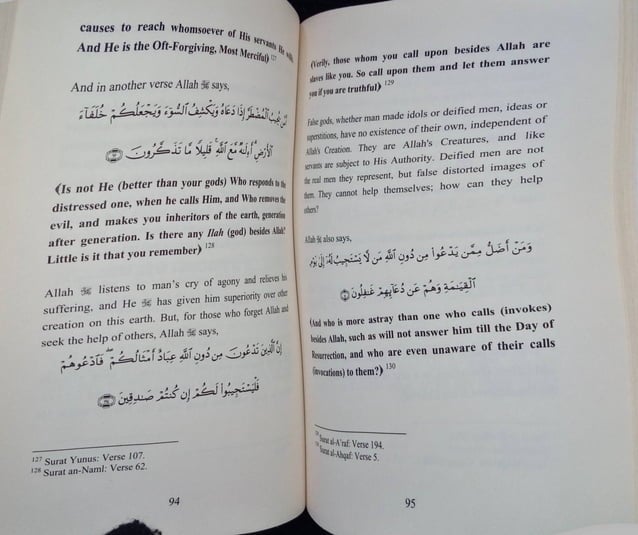 causes to reach whomsoever of His servants He wills.
And He is the Oft-Forgiving, Most Merciful﴿ 127
And in another verse Allah ﷻ says,
أَمَّن يُجِيبُ ٱلْمُضْطَرَّ إِذَا دَعَاهُ وَيَكْشِفُ ٱلسُّوٓءَ وَيَجْعَلُكُمْ خُلَفَآءَ
ٱلْأَرْضِ أَءِلَٰهٌ مَّعَ ٱللَّهِ قَلِيلًا مَّا تَذَكَّرُونَ
﴾Is not He (better than your gods) Who responds to the
distressed one, when he calls Him, and Who removes the
evil, and makes you inheritors of the earth, generation
after generation. Is there any Ilah (god) besides Allah?
Little is it that you remember﴿ 128
Allah ﷻ listens to man's cry of agony and relieves his
suffering, and He ﷻ has given him superiority over other
creation on this earth. But, for those who forget Allah and
seek the help of others, Allah ﷻ says,
إِنَّ ٱلَّذِينَ تَدْعُونَ مِن دُونِ ٱللَّهِ عِبَادٌ أَمْثَالُكُمْ فَٱدْعُوهُمْ
فَلْيَسْتَجِيبُوا۟ لَكُمْ إِن كُنتُمْ صَٰدِقِينَ
127 Surat Yunus: Verse 107.
128 Surat an-Naml: Verse 62.
94
﴾Verily, those whom you call upon besides Allah are
slaves like you. So call upon them and let them answer
you if you are truthful﴿ 129
False gods, whether man made idols or deified men, ideas or
superstitions, have no existence of their own, independent of
Allah's Creation. They are Allah's Creatures, and like
servants are subject to His Authority. Deified men are not
the real men they represent, but false distorted images of
them. They cannot help themselves; how can they help
others?
Allah ﷻ also says,
وَمَنْ أَضَلُّ مِمَّن يَدْعُوا۟ مِن دُونِ ٱللَّهِ مَن لَّا يَسْتَجِيبُ لَهُۥٓ إِلَىٰ يَوْمِ
ٱلْقِيَٰمَةِ وَهُمْ عَن دُعَآئِهِمْ غَٰفِلُونَ
﴾And who is more astray than one who calls (invokes)
besides Allah, such as will not answer him till the Day of
Resurrection, and who are even unaware of their calls
(invocations) to them?﴿ 130
Surat al-A'raf: Verse 194.
Surat al-Ahqaf: Verse 5.
95